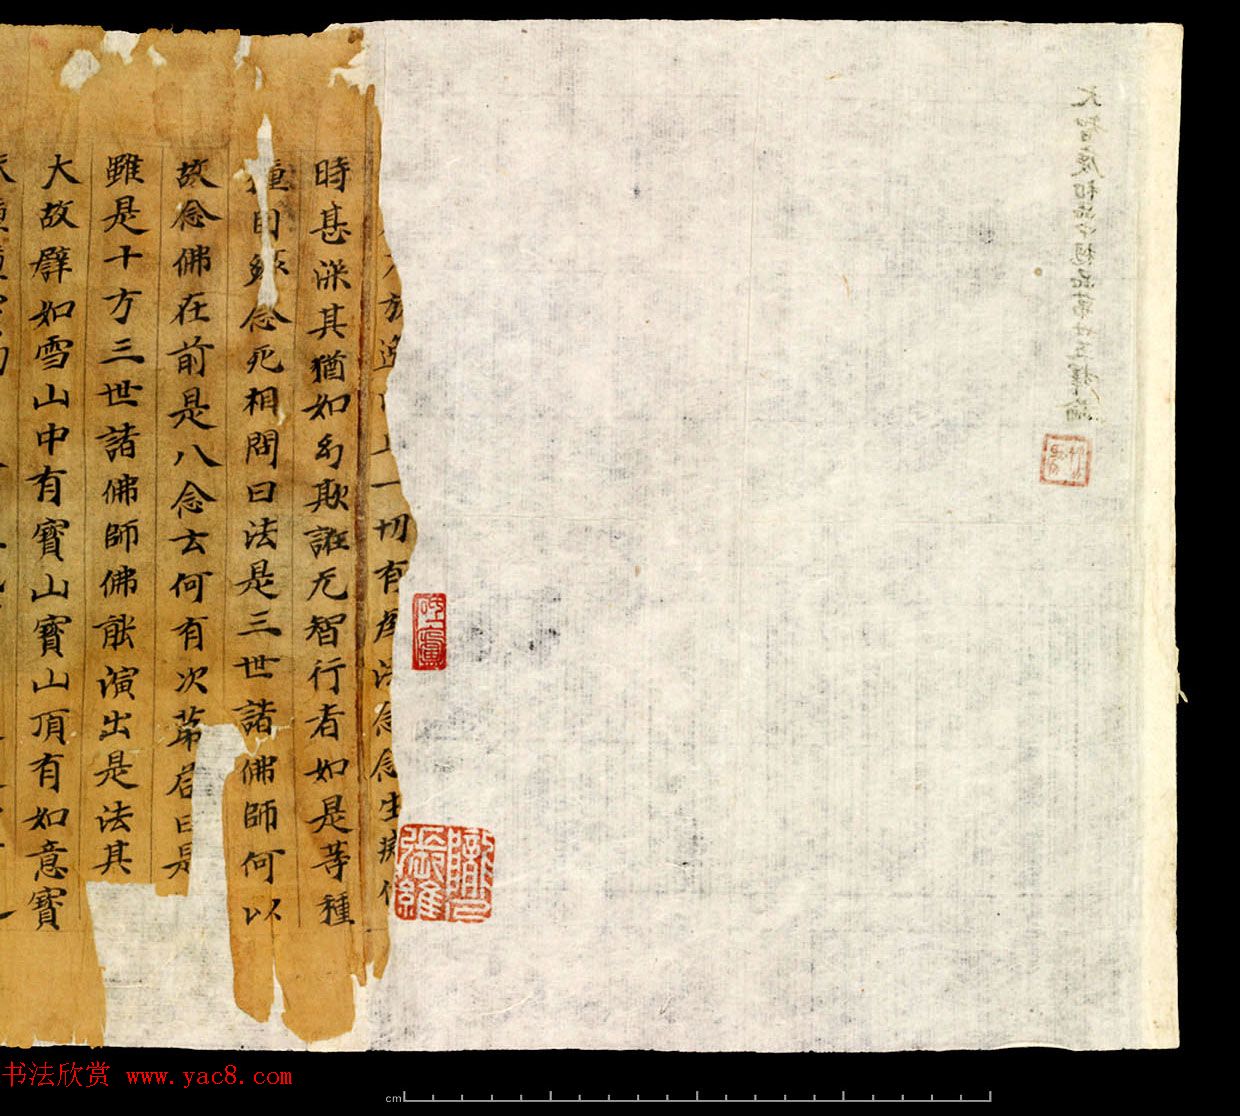 大智度初品中品第廿五釋論
隴右張維
一切有為法念念生
時甚深其猶如幻欺誑无智行者如是等種
種因緣念死相問曰法是三世諸佛師何以
故念佛在前是八念云何有次第答曰是
雖是十方三世諸佛師佛能演出是法其
大故譬如雪山中有寶山寶山頂有如意寶
书法欣赏 www.yac8.com
cm